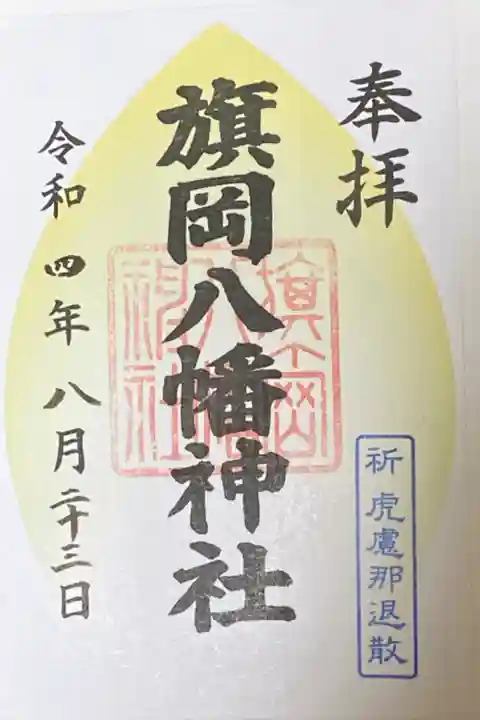 奉拝
旗岡八幡神社
旗岡八幡神社
令和四年八月二十三日
祈虎慮那退散